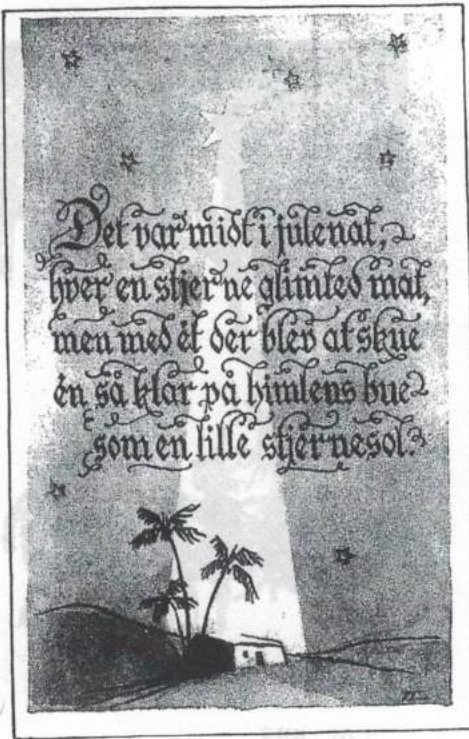 Det var midt i julenat,
hver en stjerne glimted mat,
men med ét der blev at skue
én så klar på himlens bue
som en lille stjernesol.